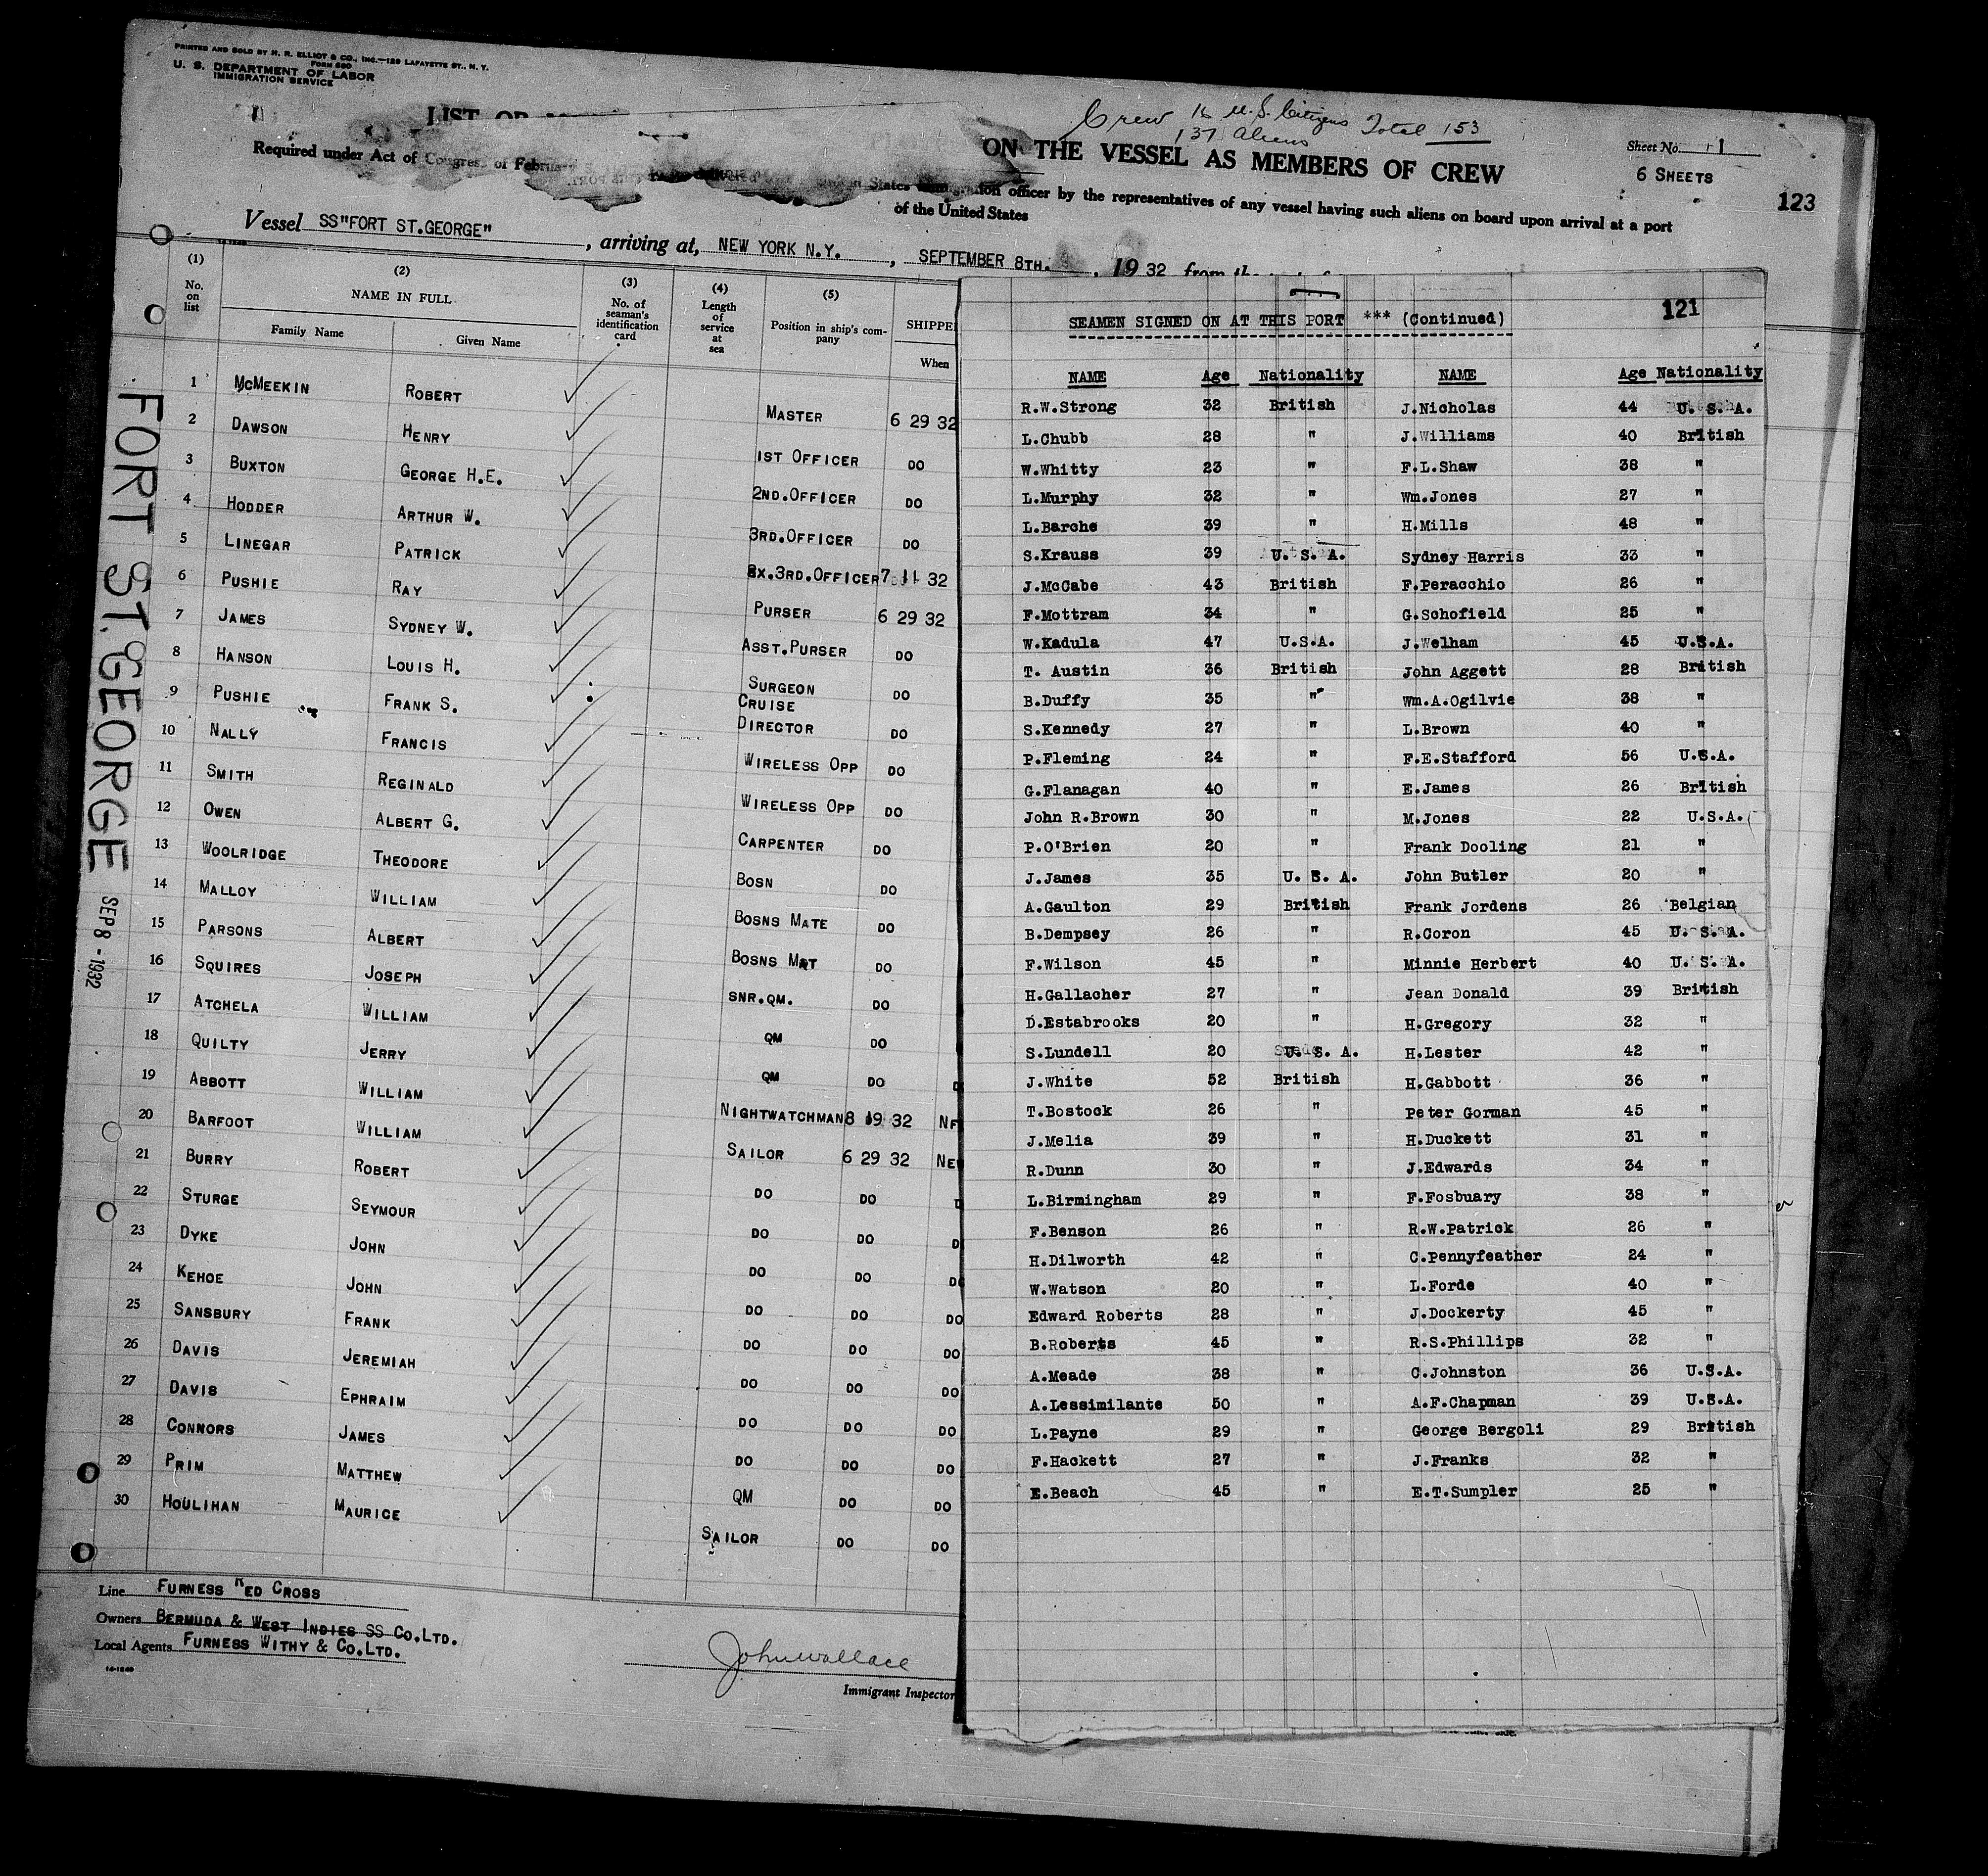 PRINTED AND SOLD BY H. R. ELLIOT & CO., INC.—129 LAFAYETTE ST., N. Y.
FORM 680
U. S. DEPARTMENT OF LABOR
IMMIGRATION SERVICE
Crew 16 U.S. Citizens Total 153
137 Aliens
LIST OR
ON THE VESSEL AS MEMBERS OF CREW
Sheet No. 1
6 SHEETS
123
Required under Act of Congress of February United States immigration officer by the representatives of any vessel having such aliens on board upon arrival at a port
of the United States
Vessel SS"FORT ST.GEORGE" , arriving at, NEW YORK N.Y. , SEPTEMBER 8TH. , 19 32 from the port of
(1) (2) (3) (4) (5)
No. on list NAME IN FULL No. of seaman's identification card Length of service at sea Position in ship's company SHIPPE
Family Name Given Name When
1 McMEEKIN ROBERT MASTER 6 29 32
2 DAWSON HENRY 1ST OFFICER DO
3 BUXTON GEORGE H.E. 2ND.OFFICER DO
4 HODDER ARTHUR W. 3RD.OFFICER DO
5 LINEGAR PATRICK EX.3RD.OFFICER 7 11 32
6 PUSHIE RAY PURSER 6 29 32
7 JAMES SYDNEY W. ASST.PURSER DO
8 HANSON LOUIS H. SURGEON DO
9 PUSHIE FRANK S. CRUISE DIRECTOR DO
10 NALLY FRANCIS WIRELESS OPP DO
11 SMITH REGINALD WIRELESS OPP DO
12 OWEN ALBERT G. CARPENTER DO
13 WOOLRIDGE THEODORE BOSN DO
14 MALLOY WILLIAM BOSNS MATE DO
15 PARSONS ALBERT BOSNS MAT DO
16 SQUIRES JOSEPH SNR.QM. DO
17 ATCHELA WILLIAM QM DO
18 QUILTY JERRY QM DO D
19 ABBOTT WILLIAM NIGHTWATCHMAN 8 19 32 NF
20 BARFOOT WILLIAM SAILOR 6 29 32 NEW
21 BURRY ROBERT DO DO D
22 STURGE SEYMOUR DO DO D
23 DYKE JOHN DO DO DO
24 KEHOE JOHN DO DO DO
25 SANSBURY FRANK DO DO DO
26 DAVIS JEREMIAH DO DO DO
27 DAVIS EPHRAIM DO DO DO
28 CONNORS JAMES DO DO DO
29 PRIM MATTHEW QM DO DO
30 HOULIHAN MAURICE SAILOR DO DO
Line FURNESS RED CROSS
Owners BERMUDA & WEST INDIES SS CO.LTD.
Local Agents FURNESS WITHY & CO.LTD.
John Wallace
Immigrant Inspector
FORT ST. GEORGE
SEP 8 - 1932
121
SEAMEN SIGNED ON AT THIS PORT *** (Continued)
NAME Age Nationality NAME Age Nationality
R.W.Strong 32 British J.Nicholas 44 U. S. A.
L.Chubb 28 " J.Williams 40 British
W.Whitty 23 " F.L.Shaw 38 "
L.Murphy 32 " Wm.Jones 27 "
L.Barche 39 " H.Mills 48 "
S.Krauss 39 U. S. A. Sydney Harris 33 "
J.McCabe 43 British F.Peracchio 26 "
F.Mottram 34 " G.Schofield 25 "
W.Kadula 47 U.S.A. J.Welham 45 U.S.A.
T. Austin 36 British John Aggett 28 British
B.Duffy 35 " Wm.A.Ogilvie 38 "
S.Kennedy 27 " L.Brown 40 "
P.Fleming 24 " F.E.Stafford 56 U.S.A.
G.Flanagan 40 " E.James 26 British
John R.Brown 30 " M.Jones 22 U.S.A.
P.O'Brien 20 " Frank Dooling 21 "
J.James 35 U. S. A. John Butler 20 "
A.Gaulton 29 British Frank Jordens 26 Belgian
B.Dempsey 26 " R.Coron 45 U. S. A.
F.Wilson 45 " Minnie Herbert 40 U. S. A.
H.Gallacher 27 " Jean Donald 39 British
D.Estabrooks 20 " H.Gregory 32 "
S.Lundell 20 U. S. A. H.Lester 42 "
J.White 52 British H.Gabbott 36 "
T.Bostock 26 " Peter Gorman 45 "
J.Melia 39 " H.Duckett 31 "
R.Dunn 30 " J.Edwards 34 "
L.Birmingham 29 " F.Fosbuary 38 "
F.Benson 26 " R.W.Patrick 26 "
H.Dilworth 42 " C.Pennyfeather 24 "
W.Watson 20 " L.Forde 40 "
Edward Roberts 28 " J.Dockerty 45 "
B.Roberts 45 " R.S.Phillips 32 "
A.Meade 38 " C.Johnston 36 U.S.A.
A.Lessimilante 50 " A.F.Chapman 39 U.S.A.
L.Payne 29 " George Bergoli 29 British
F.Hackett 27 " J.Franks 32 "
E.Beach 45 " E.T.Sumpler 25 "